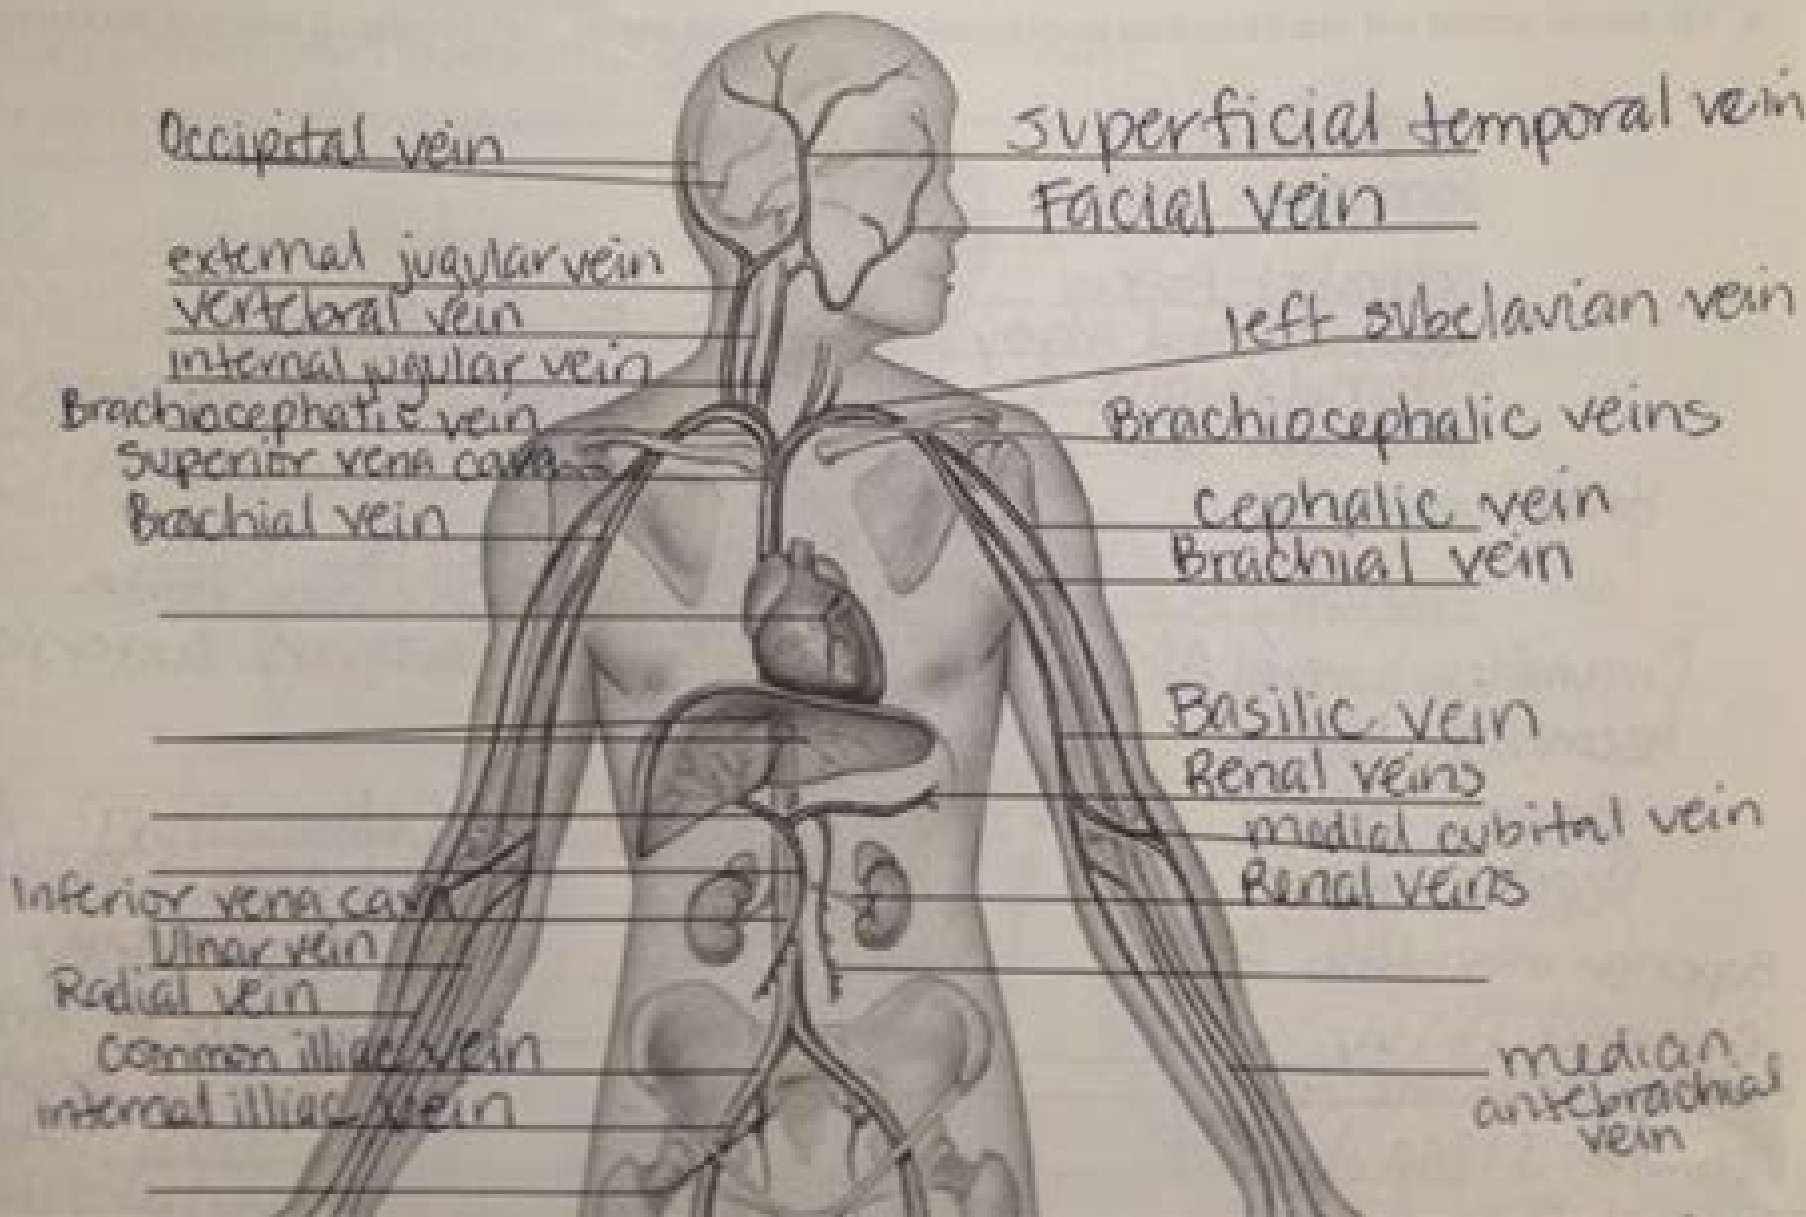 Occipital vein
external jugular vein
vertebral vein
internal jugular vein
Brachiocephalic vein
Superior vena cava
Brachial vein
Inferior vena cava
Ulnar vein
Radial vein
common illiac vein
internal illiac vein
superficial temporal vein
Facial vein
left subclavian vein
Brachiocephalic veins
cephalic vein
Brachial vein
Basilic vein
Renal veins
medial cubital vein
Renal veins
median
antebrachial
vein